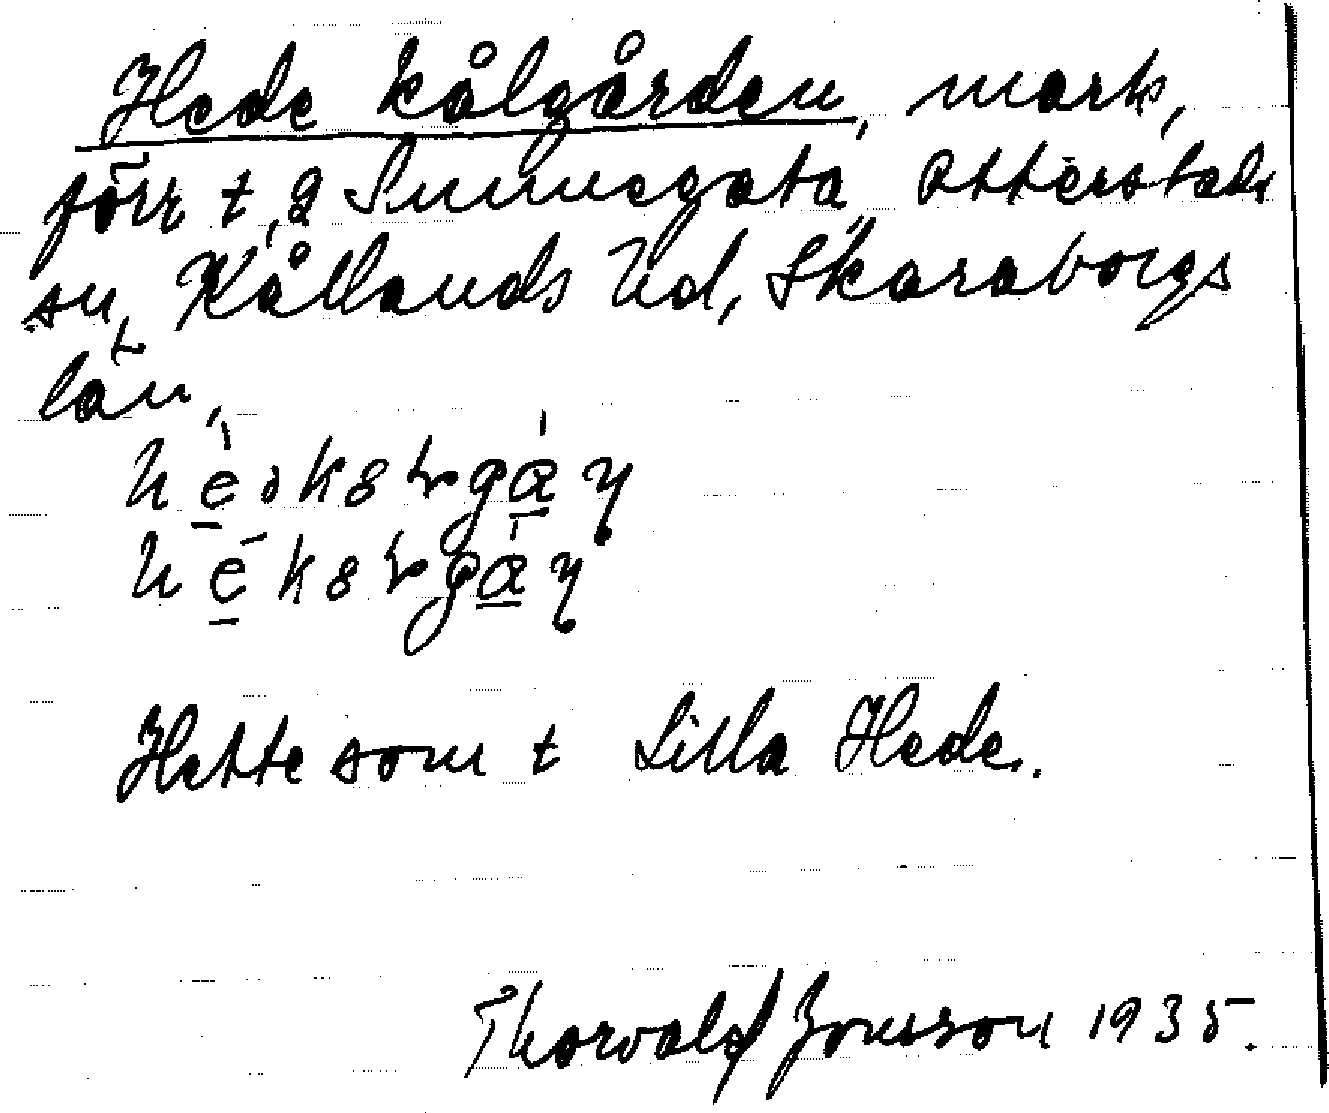 Hede kålgården, mark,
förr t. g. Sunnegata, Otterstads
sn, Kållands hd, Skaraborgs
län.
Hette som t Lilla Hede.
Thorvald Jonsson 1935.